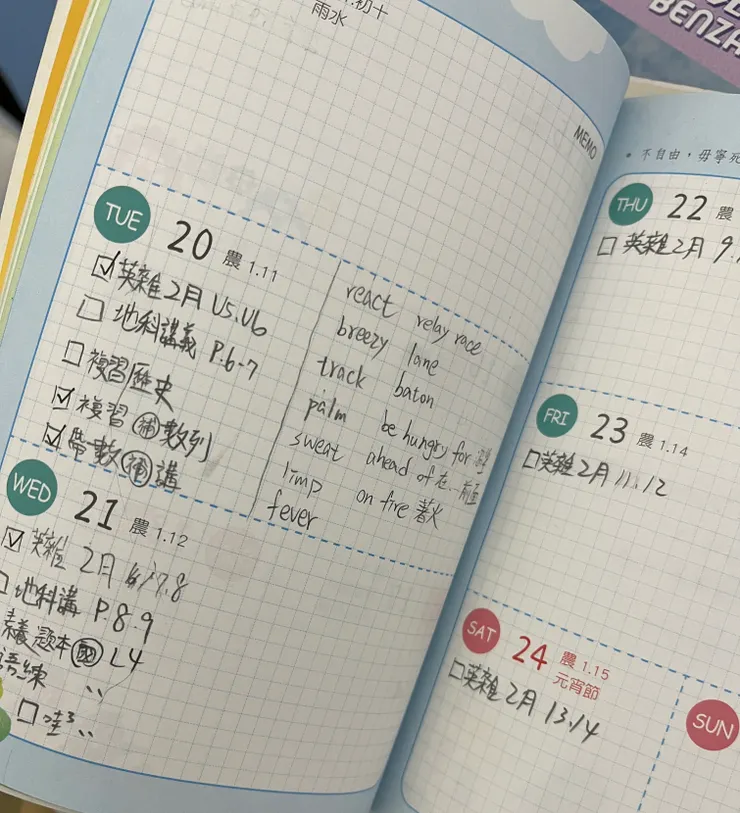 初十
雨水
MEMO
TUE 20 農 1.11
英雜2月 U5.U6
地科講義 P.6-7
複習歷史
複習 補 數列
帶數 補 講
react
breezy
track
palm
sweat
limp
fever
relay race
lane
baton
be hungry for
ahead of 在...前面
on fire 著火
WED 21 農 1.12
英雜 2月 7.8
地科講 P.8.9
題本 國 L4
口哇
BENZA
不自由，毋寧死
THU 22 農
英雜2月 9.
FRI 23 農 1.14
英雜2月 11.12
SAT 24 農 1.15
元宵節
英雜2月 13.14
SUN